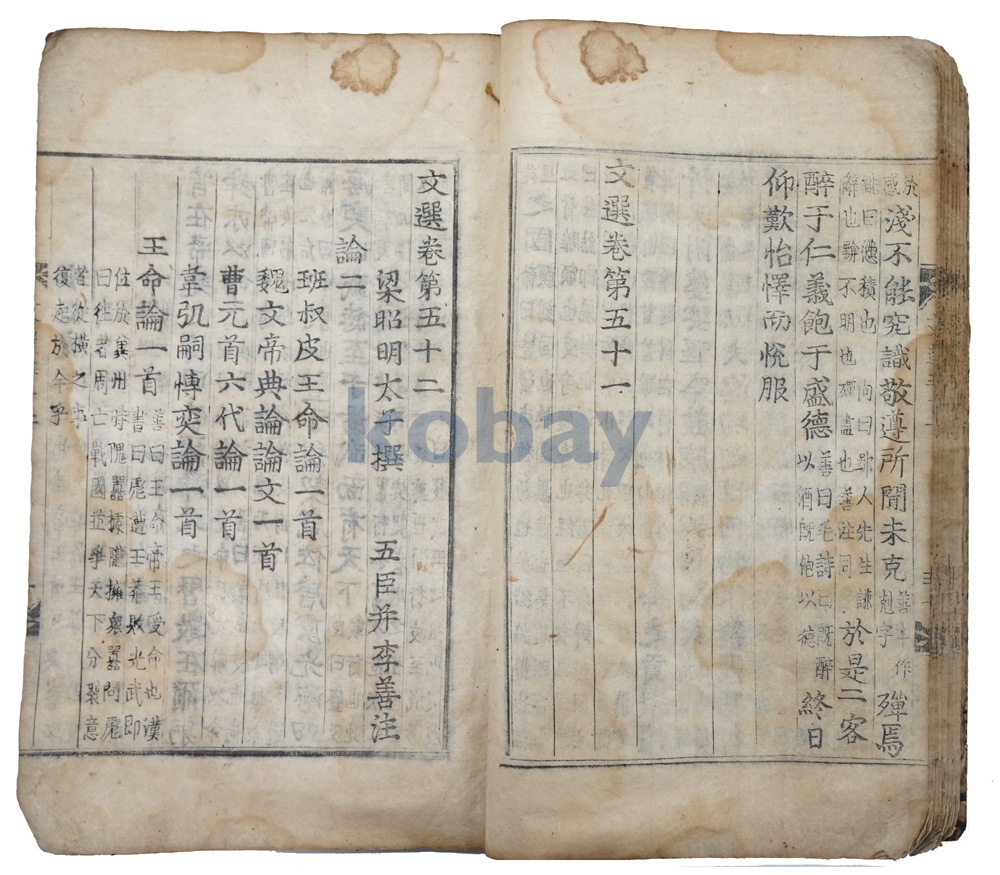 淺不能究識敬遵所聞未克善本作剋字殫焉
也不明也殫盡也善注同於是二客
醉于仁義飽于盛德善曰毛詩曰既醉以酒既飽以德終日
仰歎怡懌而悅服
文選卷第五十一
文選卷第五十二
梁昭明太子撰 五臣并李善注
論二
班叔皮王命論一首
魏文帝典論論文一首
曹元首六代論一首
韋弘嗣愽奕論一首
王命論一首
善曰王命帝王受命也漢
書曰彪遭王莽敗光武即
位於冀州時隗囂據隴擁衆囂問彪
曰往者周亡戰國並爭天下分裂意
者從橫之事
復起於今乎
kobay